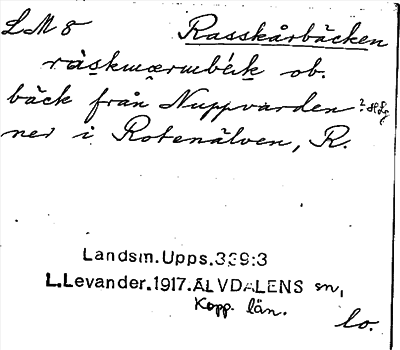 LM 8 Rasskårbäcken
råskwærmbék ob.
bäck från Nuppvarden
ner i Rotenälven, R.
Landsm.Upps.339:3
L.Levander.1917.ÄLVDALENS sn,
Kopp. län.
lo.